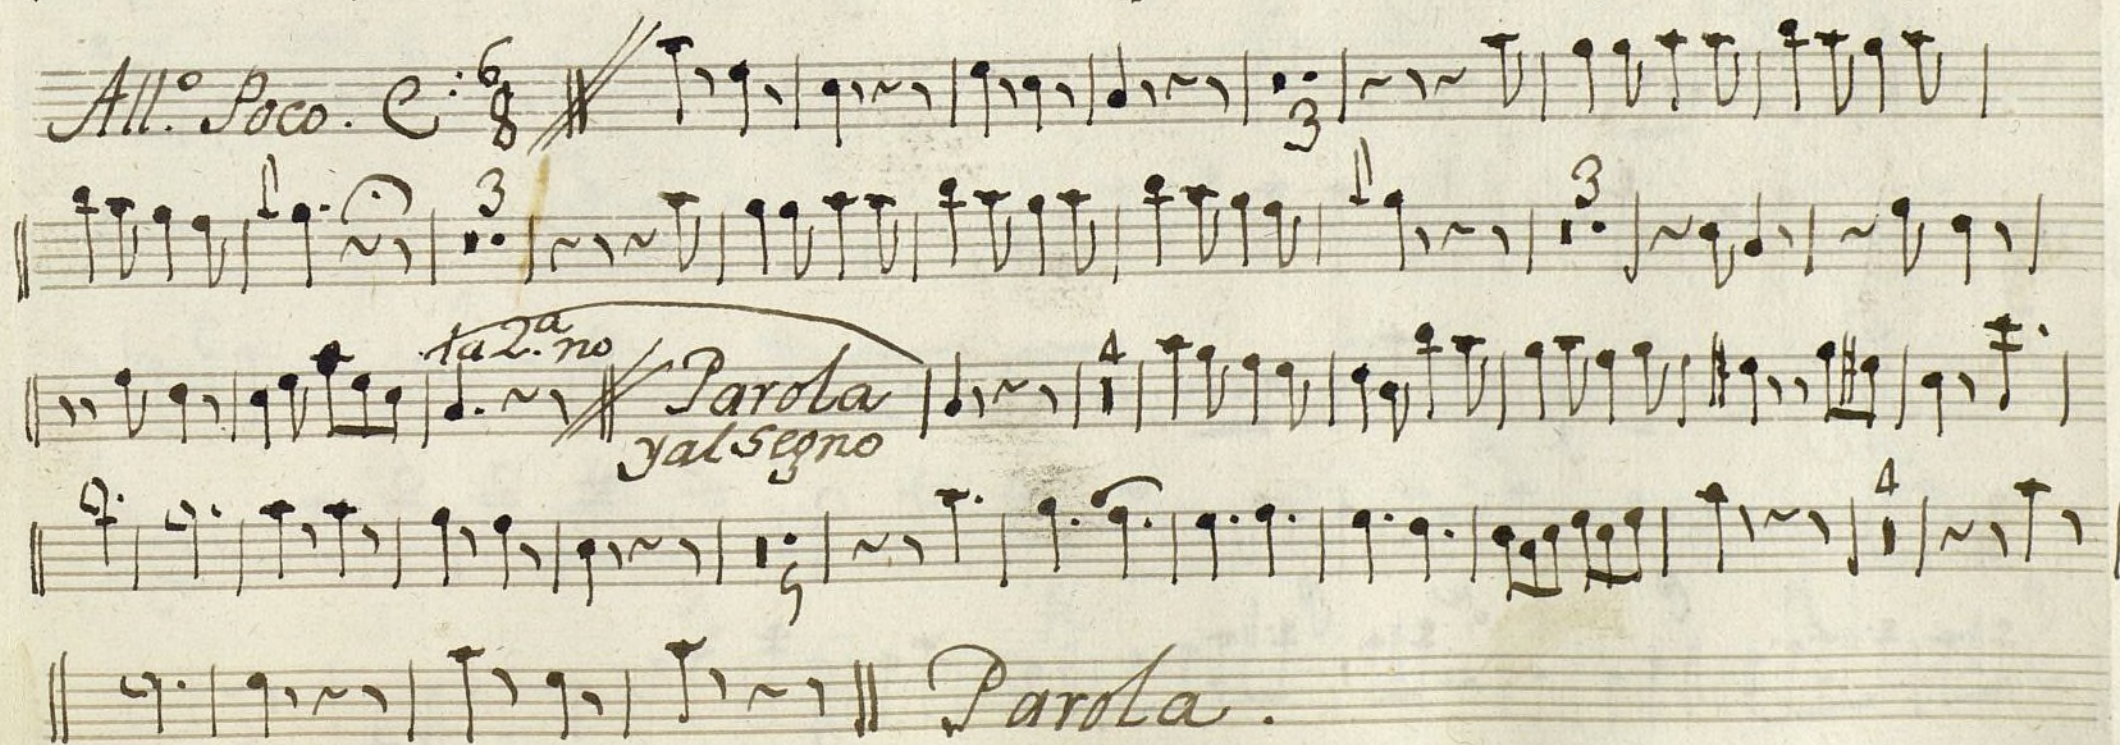 All.º Poco. C: 6/8
3
3 3
ta 2.ª no
4
Parola
y al segno
4
5
Parola.